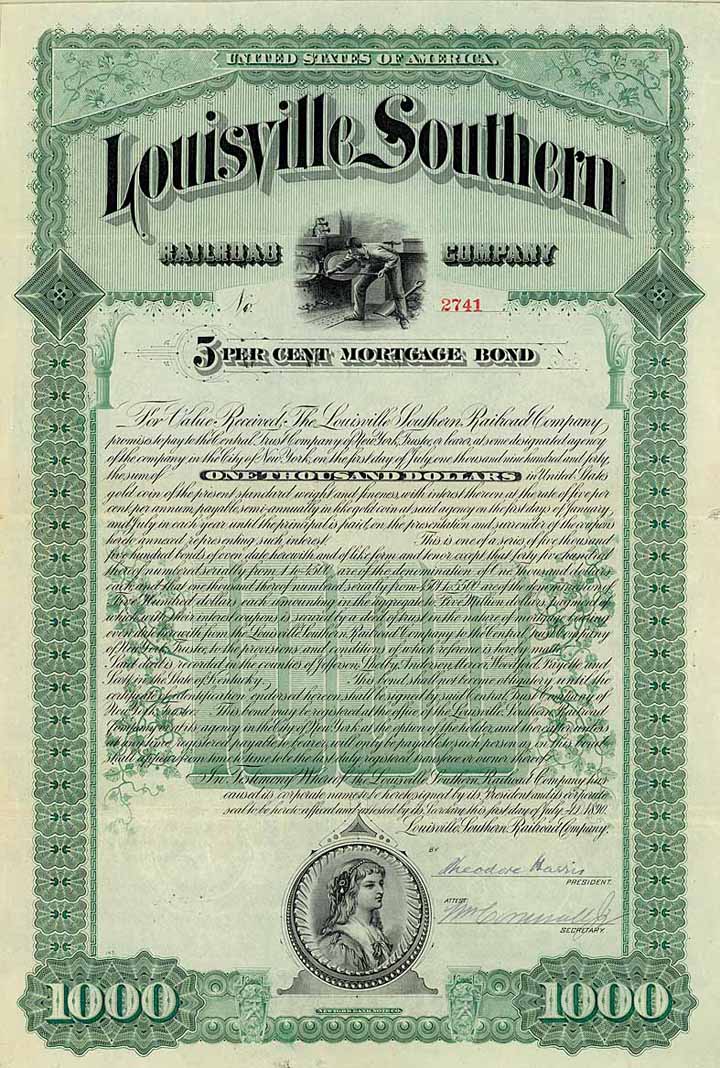 UNITED STATES OF AMERICA.
Louisville Southern
RAILROAD COMPANY
No. 2741
5 PER CENT MORTGAGE BOND
For Value Received, The Louisville Southern Railroad Company
promises to pay to the Central Trust Company of New York, Trustee, or bearer, at some designated agency
of the company in the City of New York, on the first day of July, one thousand nine hundred and forty,
the sum of ONE THOUSAND DOLLARS in United States
gold coin of the present standard weight and fineness, with interest thereon at the rate of five per
cent per annum, payable semi-annually in like gold coin at said agency on the first days of January
and July in each year until the principal is paid, on the presentation and surrender of the coupons
hereto annexed representing such interest. This is one of a series of five thousand
five hundred bonds of even date herewith and of like form and tenor, except that forty five hundred
thereof numbered serially from 1 to 4500 are of the denomination of One thousand dollars
each and that one thousand thereof numbered serially from 4501 to 5500 are of the denomination of
Five Hundred dollars each amounting in the aggregate to Five Million dollars, payment of
which with their interest coupons is secured by a deed of trust in the nature of mortgage bearing
even date herewith from the Louisville Southern Railroad Company to the Central Trust Company
of New York, Trustee, to the provisions and conditions of which reference is hereby made.
Said deed is recorded in the counties of Jefferson, Shelby, Anderson, Mercer, Woodford, Fayette and
in the State of Kentucky. This bond shall not become obligatory until the
certificate of identification endorsed hereon shall be signed by said Central Trust Company of
New York, Trustee. This bond may be registered at the office of the Louisville Southern Railroad
Company or at its agency in the City of New York at the option of the holder and thereafter unless
registered payable to bearer, will only be payable to such person as in this bond
shall appear from time to time to be the last duly registered transferee or owner hereof.
In Testimony Whereof the Louisville Southern Railroad Company has
caused its corporate name to be hereto signed by its President and its corporate
seal to be hereto affixed and attested by its Secretary this first day of July A.D. 1890.
Louisville Southern Railroad Company,
BY
Theodore Harris
PRESIDENT.
ATTEST
SECRETARY.
1000 1000
NEW YORK BANK NOTE CO.